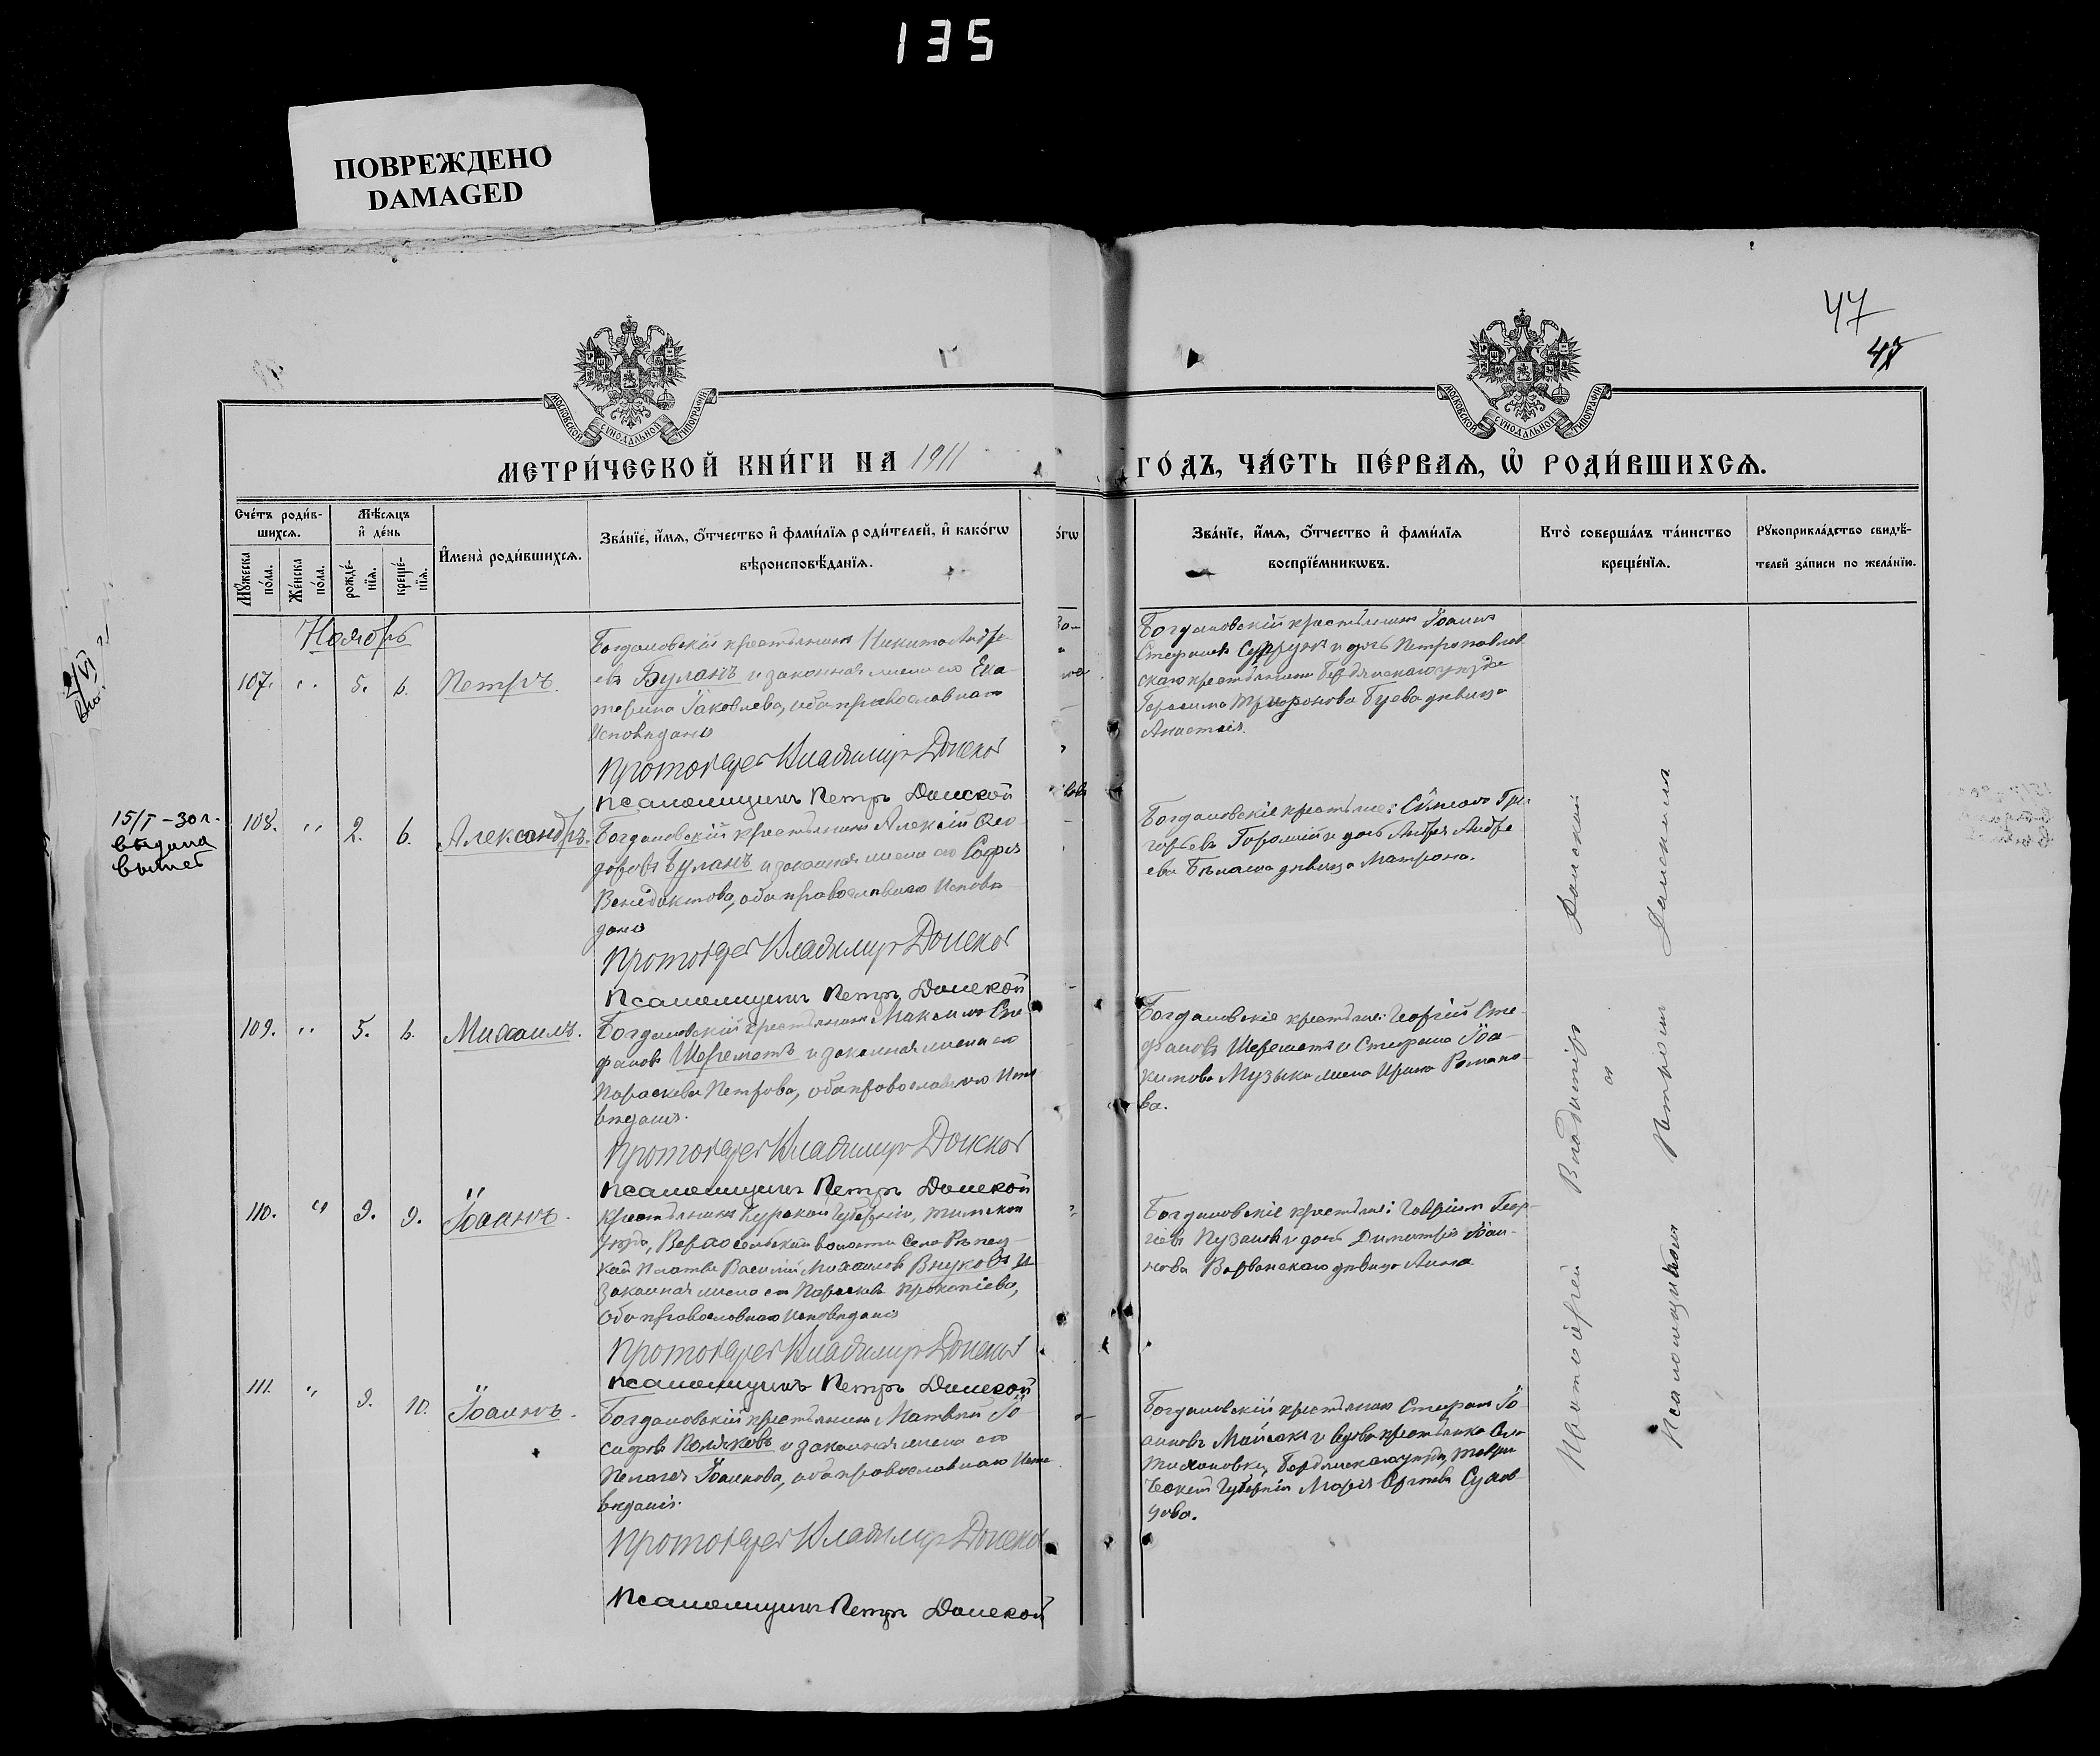 135
ПОВРЕЖДЕНО
DAMAGED
47
47
МОСКОВСКОЙ СѴНОДАЛЬНОЙ ТИПОГРАФІИ
МОСКОВСКОЙ СѴНОДАЛЬНОЙ ТИПОГРАФІИ
МЕТРИ́ЧЕСКОЙ КНИ́ГИ НА 1911
ГО́ДЪ, ЧА́СТЬ ПЕ́РВАѦ, Ѡ҆ РОДИ́ВШИХСѦ.
Сче́тъ роди́в-
шихсѧ.
Мꙋ́жеска по́ла.
Же́нска по́ла.
Мѣ́сѧцъ
и҆ де́нь
рожде́-
нїѧ.
креще́-
нїѧ.
И҆мена̀ роди́вшихсѧ.
Зва́нїе, и҆́мѧ, ѻ҆́тчество и҆ фами́лїѧ роди́телей, и҆ како́гѡ
вѣроисповѣ́данїѧ.
о́гѡ
Зва́нїе, и҆́мѧ, ѻ҆́тчество и҆ фами́лїѧ
воспрїе́мникѡвъ.
Кто̀ соверша́лъ та́инство
креще́нїѧ.
Рꙋкоприкла́дство свидѣ́-
телей за́писи по жела́нїю.
Ноябрь
107. " 5. 6. Петръ.
Богдановскій крестьянинъ Никита Андре-
евъ Буланъ и законная жена его Ека-
терина Іаковлева, оба православнаго
исповѣданія
Протоіерей Владиміръ Донской
Псаломщикъ Петръ Донской
Богдановскій крестьянинъ Іоаннъ
Стефановъ и дочь Петропавлов
скаго крестьянина Бердянскаго уѣзда
Герасима Трифонова дѣвица
Анастасія.
15/I-30 г.
выдана
выпис
108. " 2. 6. Александръ.
Богдановскій крестьянинъ Алексій Ѳео-
доровъ Буланъ и законная жена его Софія
Венедиктова, оба православнаго исповѣ-
данія
Протоіерей Владиміръ Донской
Псаломщикъ Петръ Донской
Богдановскіе крестьяне: Сѵмеонъ Гри-
горьевъ и дочь Андрея Андре
ева дѣвица Матрона.
109. " 5. 6. Михаилъ.
Богдановскій крестьянинъ Максимъ Сте-
фановъ Шереметъ и законная жена его
Параскева Петрова, оба православнаго испо
вѣданія.
Протоіерей Владиміръ Донской
Псаломщикъ Петръ Донской
Богдановскіе крестьяне: Георгій Сте-
фановъ Шереметъ и Стефана Іоа-
кимова Музыка жена Ирина Романо-
ва.
110. " 9. 9. Іоаннъ.
Крестьянинъ Курской губерніи, Тимскаго
уѣзда, Верхосельской волости села
Василій Михаиловъ Внуковъ и
законная жена его Параскева Прокопіева,
оба православнаго исповѣданія
Протоіерей Владиміръ Донской
Псаломщикъ Петръ Донской
Богдановскіе крестьяне: Гавріилъ Геор-
гіевъ Пузановъ и дочь Димитрія Іоан-
нова дѣвица Анна
111. " 9. 10. Іоаннъ.
Богдановскій крестьянинъ Матвѣй Іо-
сифовъ Поляковъ и законная жена его
Пелагея Іоаннова, оба православнаго испо
вѣданія.
Протоіерей Владиміръ Донской
Псаломщикъ Петръ Донской
Богдановскій крестьянинъ Стефанъ Іо-
анновъ и вдова крестьянка
Бердянскаго уѣзда, Таври
ческой губерніи Марія
Протоіерей Владиміръ Донской
и
Псаломщикомъ Петромъ Донскимъ